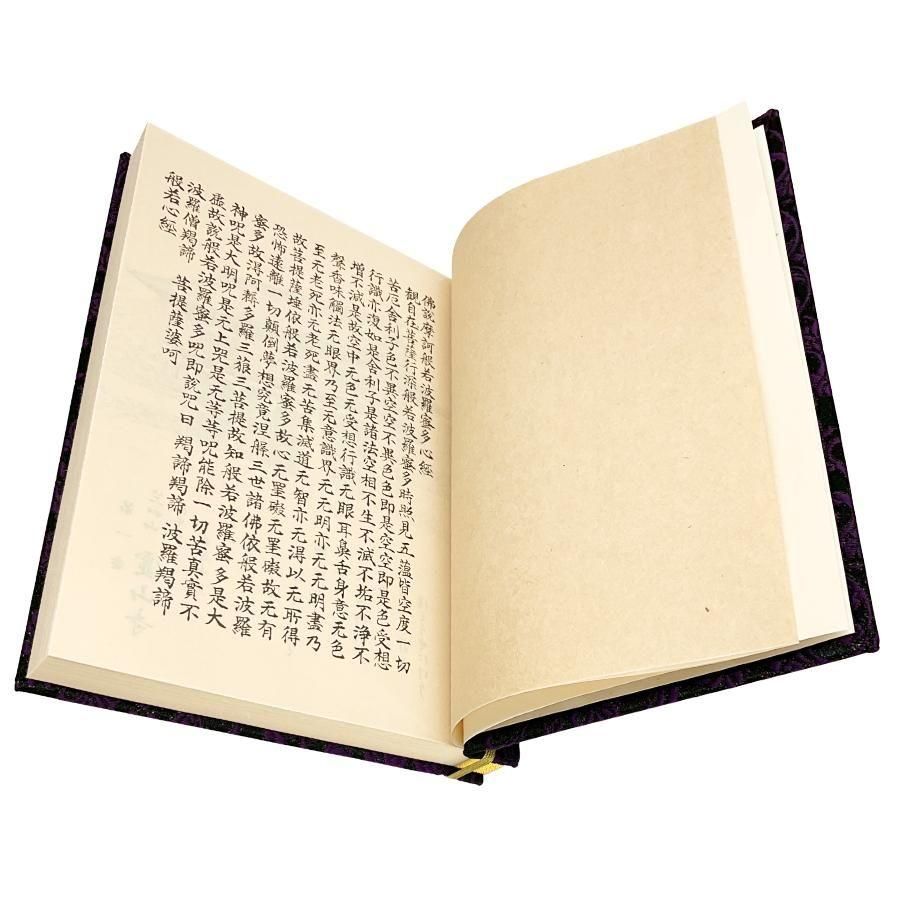 佛說摩訶般若波羅蜜多心經
觀自在菩薩行深般若波羅蜜多時照見五蘊皆空度一切
苦厄舍利子色不異空空不異色色即是空空即是色受想
行識亦復如是舍利子是諸法空相不生不滅不垢不浄不
增不減是故空中无色无受想行識无眼耳鼻舌身意无色
聲香味觸法无眼界乃至无意識界无无明亦无无明盡乃
至无老死亦无老死盡无苦集滅道无智亦无得以无所得
故菩提薩埵依般若波羅蜜多故心无罣礙无罣礙故无有
恐怖遠離一切顛倒夢想究竟涅槃三世諸佛依般若波羅
蜜多故得阿耨多羅三藐三菩提故知般若波羅蜜多是大
神呪是大明呪是无上呪是无等等呪能除一切苦真實不
虛故說般若波羅蜜多呪即說呪曰 羯諦羯諦 波羅羯諦
波羅僧羯諦 菩提薩婆呵
般若心經